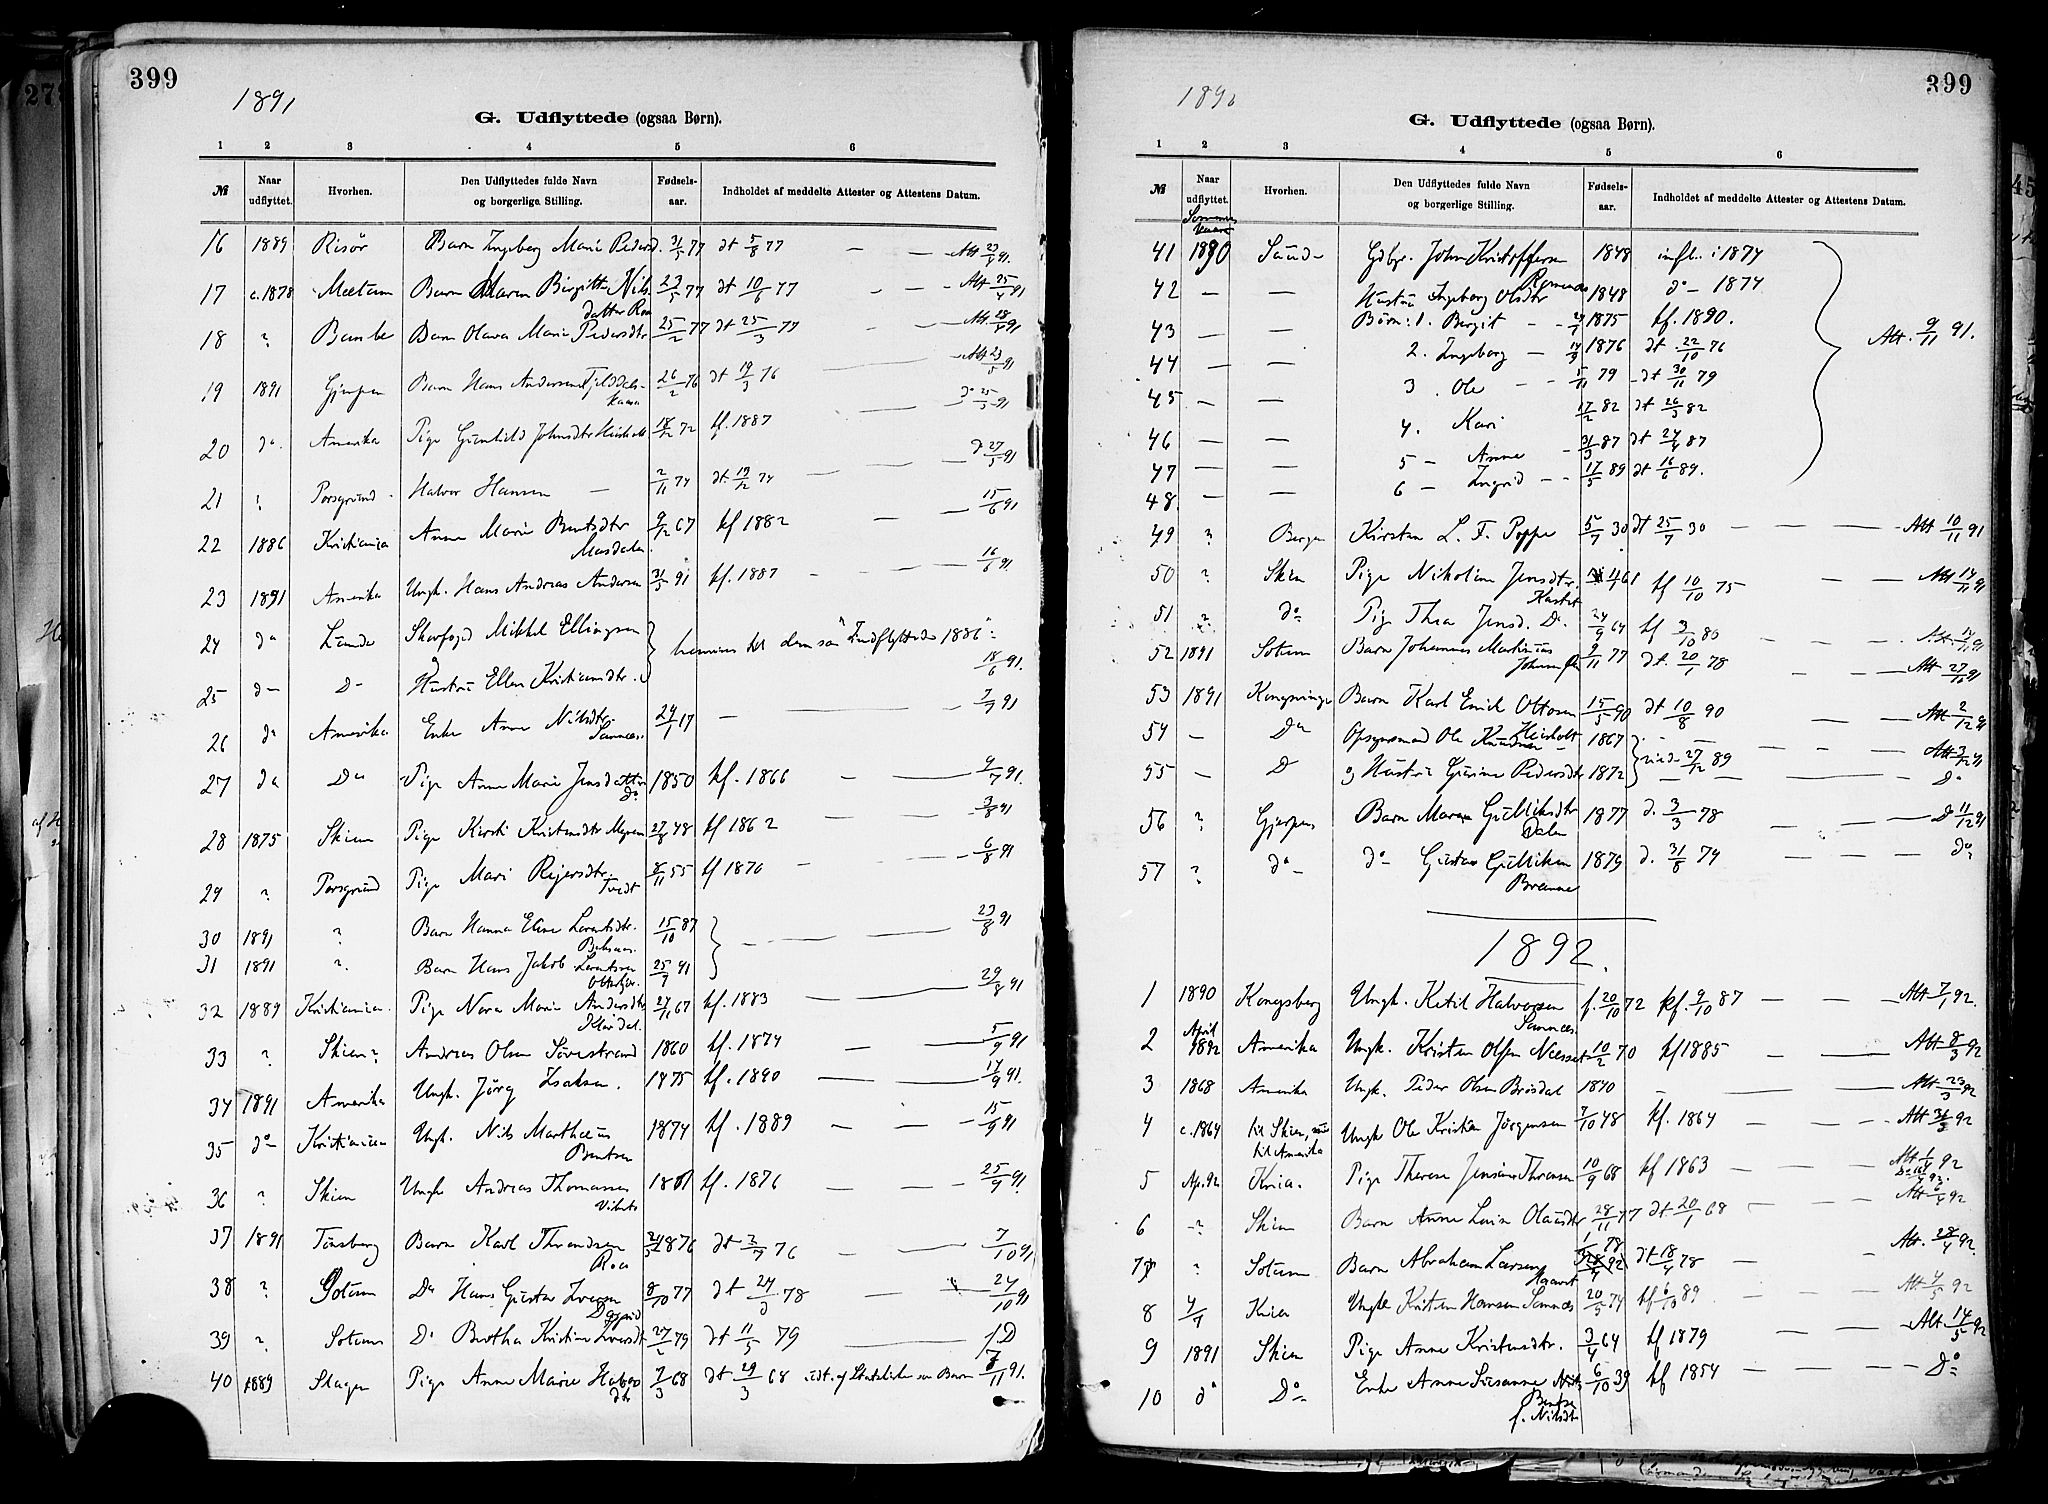 399
1891
G. Udflyttede (ogsaa Børn).
1 2 3 4 5 6
№ Naar udflyttet. Hvorhen. Den Udflyttedes fulde Navn og borgerlige Stilling. Fødsels-aar. Indholdet af meddelte Attester og Attestens Datum.
16 1889 Risør Barn Ingeborg Marie Pedersd. 31/5 77 dt 5/8 77 — — Att 23/4 91.
17 c. 1878 Barn Maren Birgitte Nils 23/5 77 dt 10/6 77 — — Att 25/4 91
datter
18 ? Bamble Barn Olava Marie Pedersdtr 25/2 77 dt 25/3 77 — — Att 28/4 91
19 1891 Gjerpen Barn Hans Andersen 26/2 76 dt 19/3 76 — Att 23/5 91
20 do. Amerika Pige Gunhild Johnsdtr 18/12 72 kf. 1887 — — do 25/5 91
21 ? Porsgrund — Halvor Hansen — 2/11 74 dt. 19/12 74 — — d 27/5 91
22 1886 Kristiania Anne Marie Bentsdtr 9/12 67 kf 1882 — — 15/6 91
Masdalen
23 1891 Amerika Ungk. Hans Andreas Andersen 31/5 91 kf. 1887 — — 16/6 91.
24 do Lunde Skovfoged Mikkel Ellingsen
25 do D— Hustru Ellen Kristiansdtr. 18/6 91.
26 do Amerika Enke Anne Nilsdtr. 24/1 17 — — 7/7 91
Sannæs
27 do Do Pige Anne Marie Jensdatter 1850 kf. 1866 — — 9/7 91.
do
28 1875 Skien Pige Kirsti Kristensdtr Myren 27/8 48 kf 1862 — — 3/8 91
29 ? Porsgrund Pige Mari Rejersdtr. 8/11 55 kf 1870 — — 6/8 91
Tvedt
30 1891 ? Barn Hanna Eline Lorentsdtr. 15/10 87 — — 23/8 91
31 1891 ? Barn Hans Jakob Lorentsen 25/9 91
32 1889 Kristiania. Pige Nora Marie Andersdtr 27/11 67 kf. 1883 — — 29/8 91
33 ? Skien? Andreas Olsen Søvestrand 1860 kf. 1874 — — 5/9 91
34 1891 Amerika Ungk. Jørg Isaksen. 1875 kf. 1890 — — 17/9 91.
35 do Kristiania Ungk. Nils Marthæus 1874 kf. 1889 — — 15/9 91
Bentsen
36 ? Skien Ungk Andreas Thomassen kf. 1876 — — 25/9 91.
37 1891 Tønsberg Barn Karl Throndsen 1876 dt 2/7 76 — — 7/10 91
38 ? Solum Do Hans Gustav Iversen 8/10 77 dt 27/ 78 — 24/10 91
39 ? Solum Do Bertha Kristine Iversdtr 27/2 79 dt 11/5 79 — D
40 1889 Skagen Pige Anne Marie Halvors 7/3 68 dt 29/3 68 7/11 91.
dtr

399
189
G. Udflyttede (ogsaa Børn).
1 2 3 4 5 6
№ Naar udflyttet. Hvorhen. Den Udflyttedes fulde Navn og borgerlige Stilling. Fødsels-aar. Indholdet af meddelte Attester og Attestens Datum.
41 1890 Saude Gdbr. John Kristoffersen 1848 infl. i 1874
42 — — Hustru Ingeborg Olsdtr 1848 do — 1874
43 — — Børn: 1. Bergit — 1875 kf. 1890.
44 — — 2. Ingeborg — 1876 dt. 22/10 76 Att. 9/11 91.
45 — — 3. Ole — 5/11 79 dt 30/11 79
46 — — 4. Kari 17/2 82 dt 26/3 82
47 — — 5 — Anne — 31/3 87 dt 24/4 87
48. — — 6 — Ingrid — 17/5 89 dt 16/6 89.
49 ? Bergen Kirsten L. F. Poppe 5/7 30 dt 25/7 30 — — — Att 10/11 91
50 ? Skien Pige Nikoline Jensdtr. 61 kf 10/10 75 — — Att 14/11 91
51 ? do Pige Thea Jensd. Do 24/9 64 kf 3/10 80 — — Att 14/11 91
52 1891 Solum Barn Johannes Martinius 9/11 77 dt. 20/1 78 — — Att 27/11 91
53 1891 Kongsvinger Barn Karl Emil Ottosen 15/5 90 dt 10/8 90 — — Att 2/12 91
54 — Do Opsynsmand Ole Knudsen 1867 — — Att 3/12 91
55 — D og Hustru Gurine Pedersdtr 1872 27/12 89 — — Do
56 ? Gjerpen Barn Maren Gulliksdtr 1877 d. 3/3 78 — — D 11/12 91
Dalen
57 ? do do Gustav Gulliksen 1879 d. 31/8 79 — — do
1892.
1 1890 Kongsberg Ungk. Ketil Halvorsen f. 20/10 72 kf. 9/10 87 — — Att 7/1 92.
Sannæs.
2 April 1892 Amerika Ungk. Kristen Olsen 10/2 70 kf 1885 — — Att 8/3 92
3 1868 Amerika Ungk. Peder Olsen Brosdal 1840 — — Att 23/3 92
4 c. 1864 til Skien, saa til Amerika Ungk Ole Kristian Jørgensen 7/10 48 kf. 1864 — — Att 31/3 92
5 Ap. 92 Kria. Pige Therese Jensine 10/9 68 kf 1863 — — Att 1/4 92
6 ? Skien Barn Anne Lovise Olausdtr 28/11 77 dt 20/1 68 — — Att 6/4 92
7 ? Solum Barn Abraham Larsen 1/ 78 dt 18/4 78 — — Att. 28/4 92.
8 4/4 Kria Ungk Kristen Hansen Sannæs 20/5 74 kf 6/10 89 — — Att 4/5 92
9 1891 Skien Pige Anne Kristensdtr. 3/4 64 kf 1879 — — Att. 14/5 92
10 do Do Enke Anne Susanne 6/10 39 kf 1854 — — Do
f. Nilsdtr